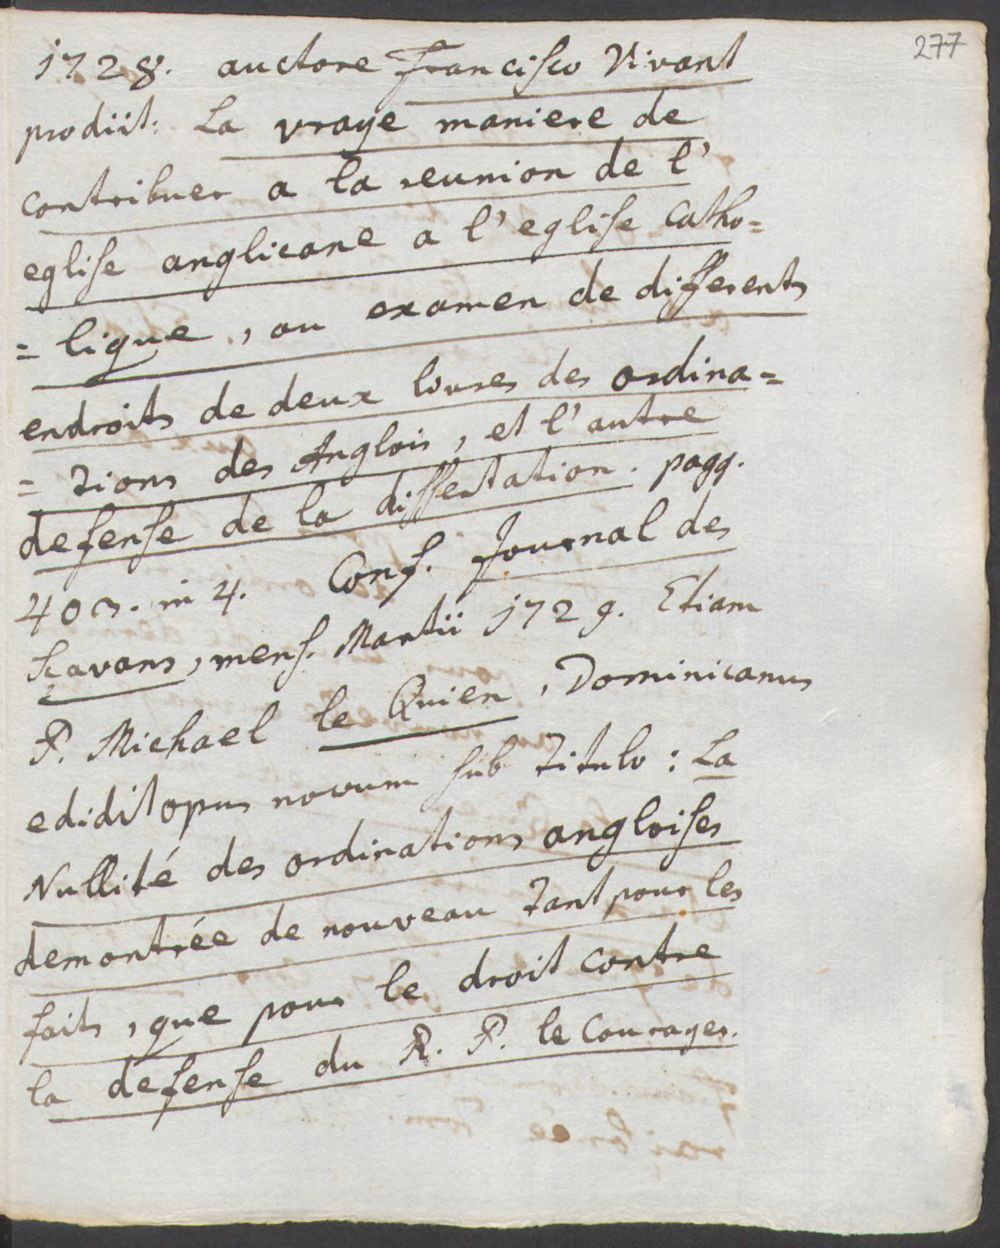 277
1728. auctore Francisco Vivant
prodiit: La vraye maniere de
contribuer a la reunion de l'
eglise anglicane a l'eglise catho=
=lique, ou examen de differents
endroits de deux livres des ordina=
=tions des Anglois, et l'autre
defense de la dissertation. pagg.
403. in 4. Conf. Journal des
Scavans, mens. Martii 1729. Etiam
P. Michael le Quien, Dominicanus
edidit opus novum sub titulo: La
Nullité des ordinations angloises
demontrée de nouveau tant pour les
faits, que pour le droit contre
la defense du R. P. le Courayer.